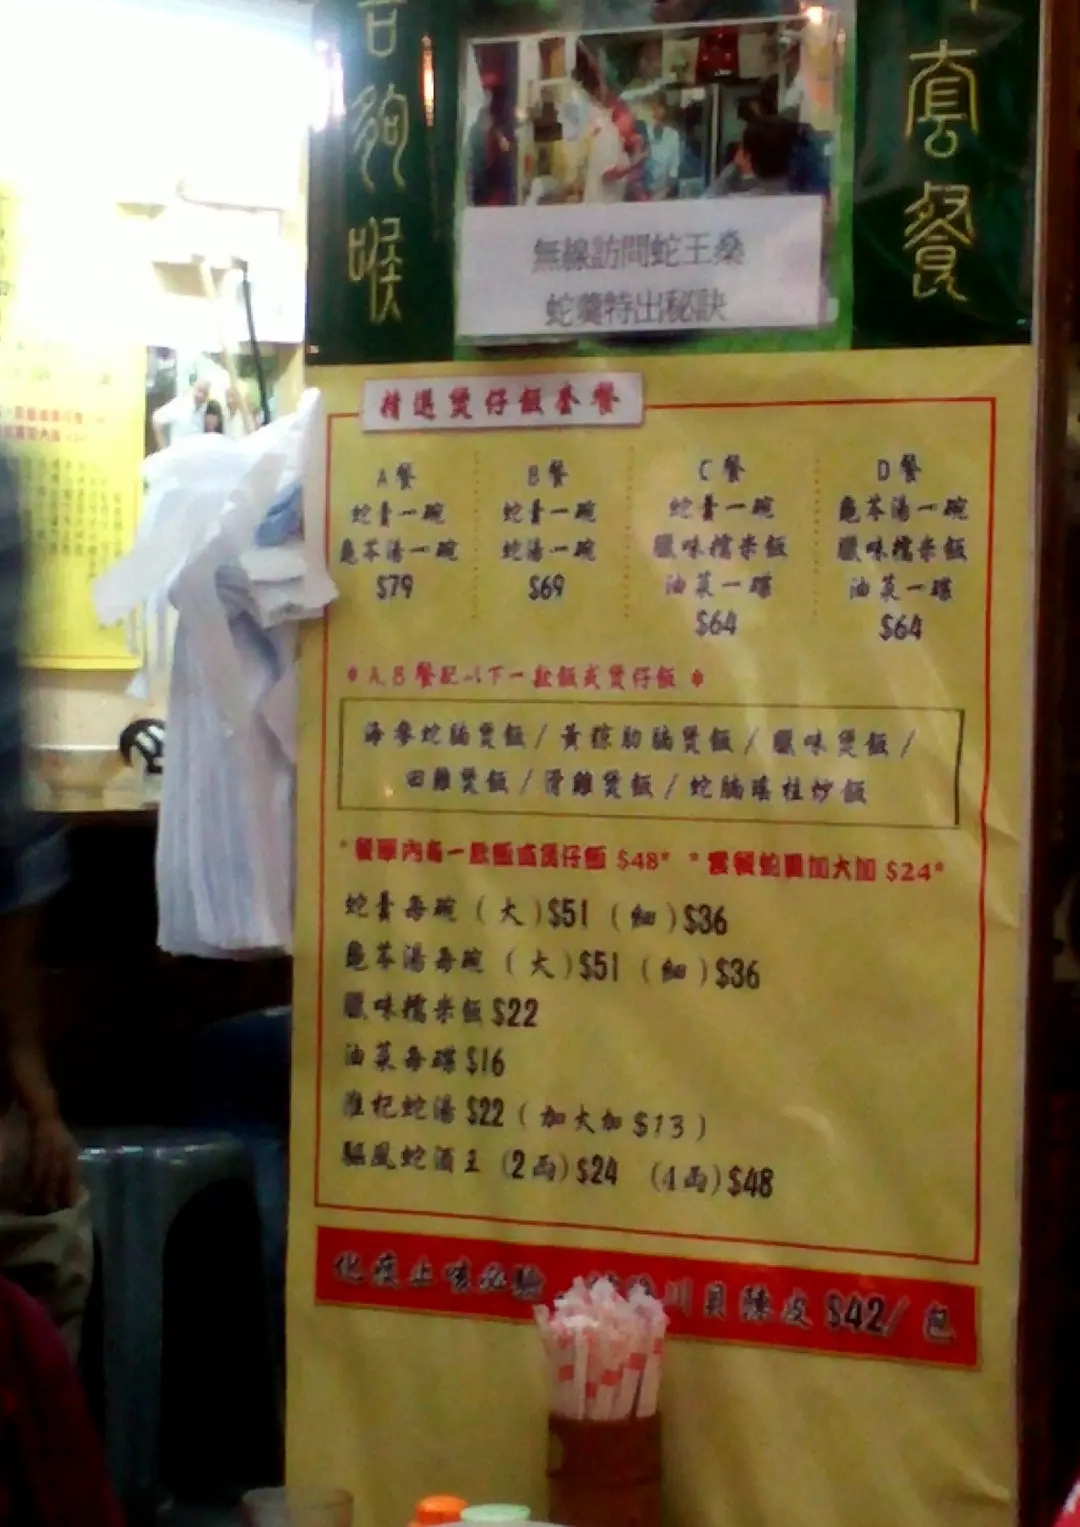 夠
喉
套
餐
無線訪問蛇王燊
蛇羹特出秘訣
精選煲仔飯套餐
A餐
蛇羹一碗
龜苓湯一碗
$79
B餐
蛇羹一碗
蛇湯一碗
$69
C餐
蛇羹一碗
臘味糯米飯
油菜一碟
$64
D餐
龜苓湯一碗
臘味糯米飯
油菜一碟
$64
* A,B餐配以下一款飯或煲仔飯 *
海參蛇腩煲飯 / 黃猄肋腩煲飯 / 臘味煲飯 /
田雞煲飯 / 滑雞煲飯 / 蛇腩瑤柱炒飯
*餐單內每一款飯或煲仔飯 $48* *套餐蛇羹加大加 $24*
蛇羹每碗 (大)$51 (細)$36
龜苓湯每碗 (大)$51 (細)$36
臘味糯米飯 $22
油菜每碟 $16
淮杞蛇湯 $22 (加大加 $13)
驅風蛇酒王 (2両)$24 (4両)$48
化痰止咳必驗 川貝陳皮 $42/包